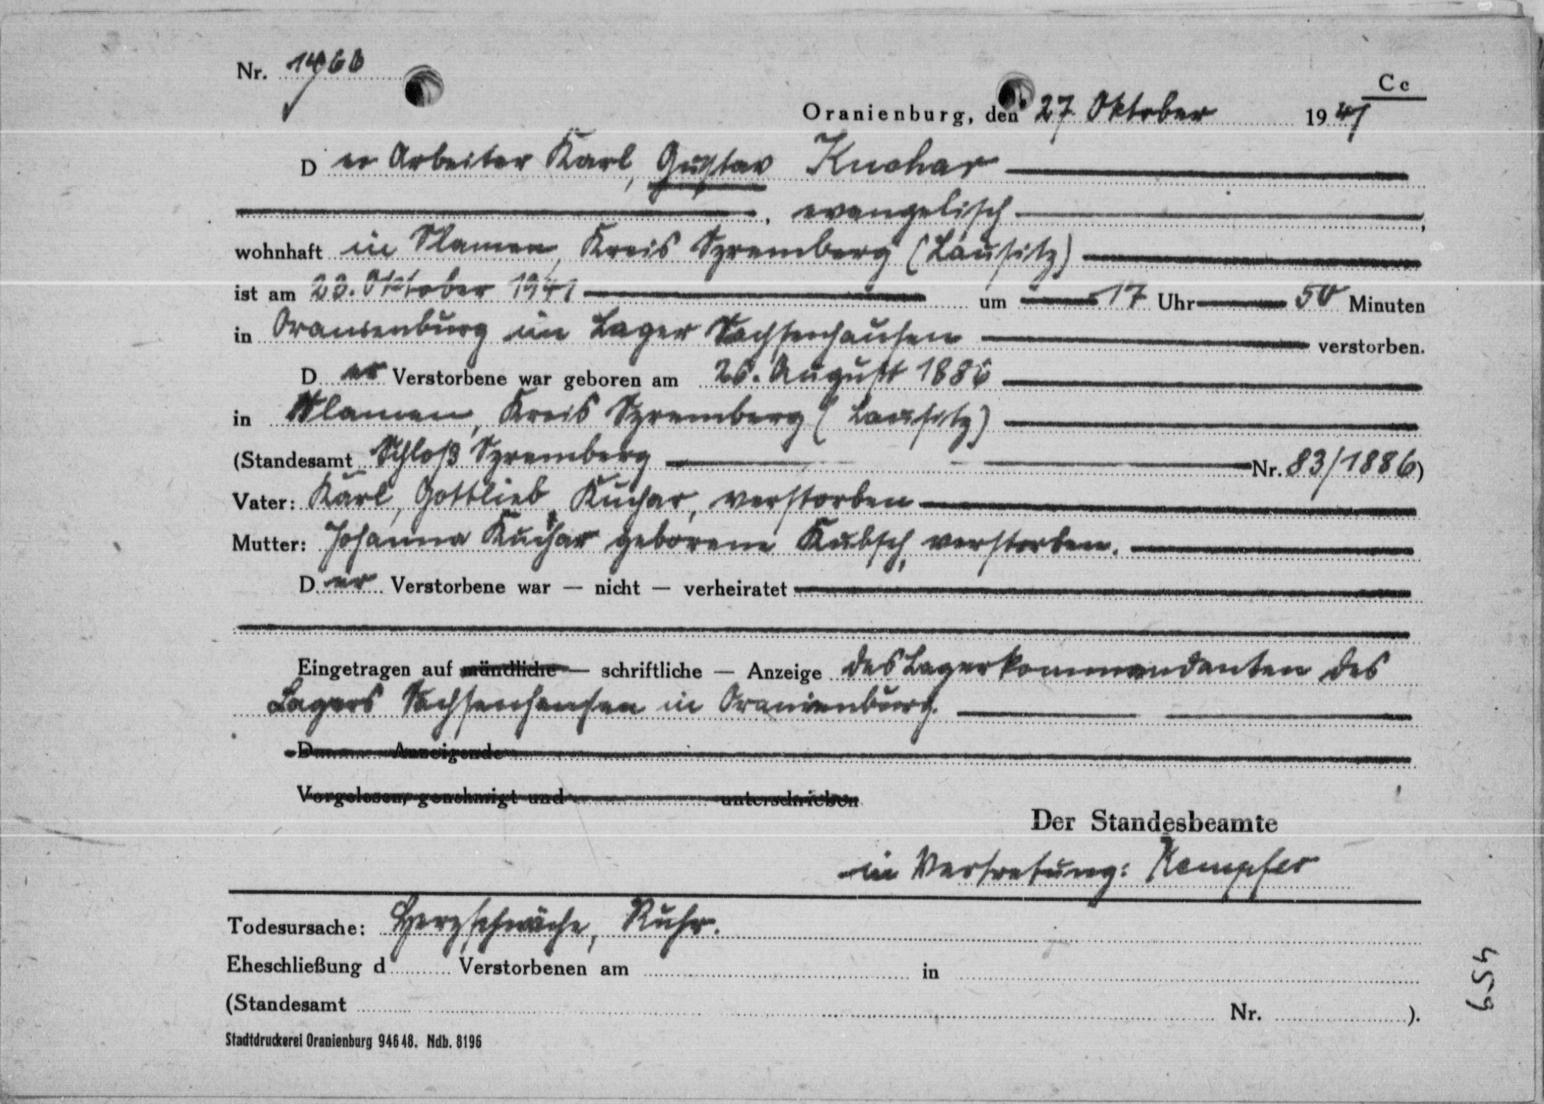 Nr. 1460
Cc
Oranienburg, den 27 Oktober 1941
Der Arbeiter Karl, Gustav Kuchar
, evangelisch ,
wohnhaft in Slamen, Kreis Spremberg (Lausitz)
ist am 23. Oktober 1941 um 17 Uhr 50 Minuten
in Oranienburg im Lager Sachsenhausen verstorben.
Der Verstorbene war geboren am 26. August 1886
in Slamen, Kreis Spremberg (Lausitz)
(Standesamt Schloß Spremberg Nr. 83/1886)
Vater: Karl, Gottlieb Kuchar, verstorben
Mutter: Johanna Kuchar geborene Kubsch, verstorben.
Der Verstorbene war — nicht — verheiratet
Eingetragen auf mündliche — schriftliche — Anzeige des Lagerkommandanten des
Lagers Sachsenhausen in Oranienburg.
D Anzeigende
Vorgelesen, genehmigt und unterschrieben
Der Standesbeamte
in Vertretung: Kempfer
Todesursache: Herzschwäche, Ruhr.
Eheschließung d Verstorbenen am in
(Standesamt Nr. ).
Stadtdruckerei Oranienburg 946 48. Ndb. 8196
459